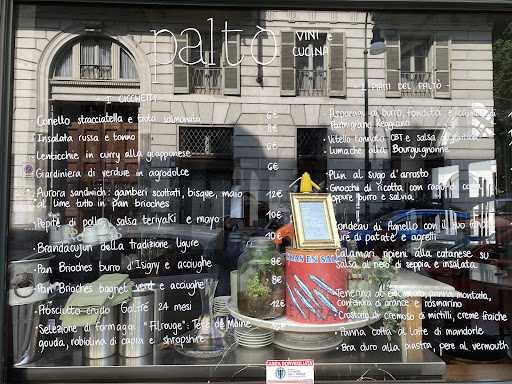 palto
VINI e
CUCINA
I CICCHETTI
I PIATTI DEL PALTÒ
Conetto, stracciatella e trota salmonata 6€
Insalata russa e tonno 6€
Lenticchie in curry alla giapponese
Giardiniera di verdure in agrodolce
Aurora sandwich: gamberi scottati, bisque, maio 12€
al lime tutto in pan brioches
Pepite di pollo, salsa teriyaki e mayo
Brandacujun della tradizione ligure
Pan Brioches burro d'Isigny e acciughe
Pan Brioches bagnet verde e acciughe
Prosciutto crudo 24 mesi
Selezione di formaggi "Filrouge": Tête de Moine,
gouda, robiolina di capra e shropshire
Asparagi al burro, fonduta e
Parmigiano Reggiano
Vitello tonnato CBT e salsa
Lumache alla Bourguignonne
Plin al sugo d'arrosto
Gnocchi di ricotta con ragù di
oppure burro e salvia
Rondeau di Agnello con il suo fondo
purè di patate e agretti
Calamari ripieni alla catanese su
salsa al nero di seppia e insalata
Tenerina al panna montata,
composta di arance e rosmarino
Crostata di cremoso di mirtilli, creme fraiche
Panna cotta al latte di mandorle
Bra duro alla piastra, pere al vermouth